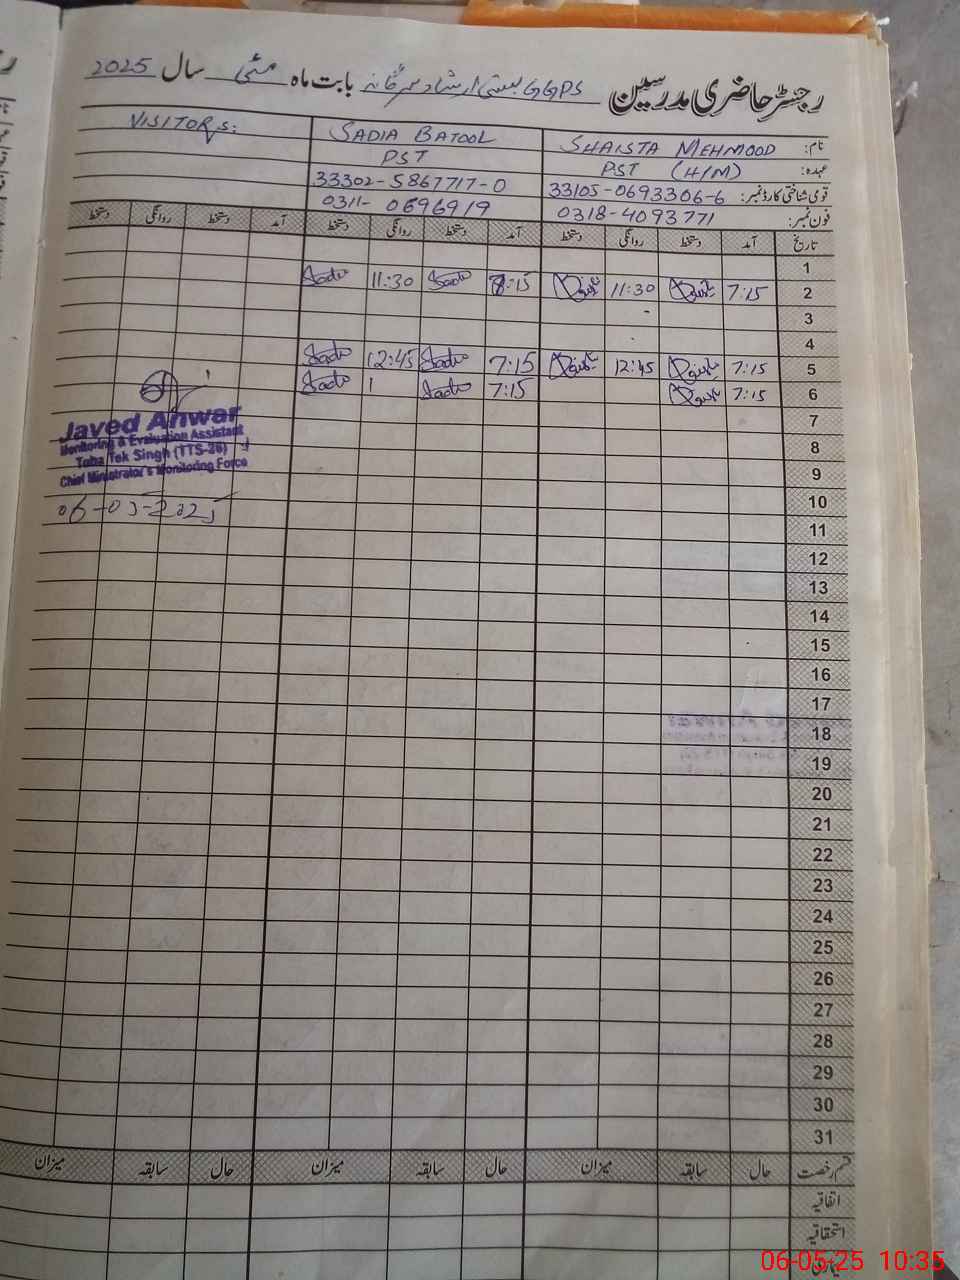 رجسٹر حاضری مدرسین GGPS بستی ارشاد سرگانہ بابت ماہ مئی سال 2025
نام: SHAISTA MEHMOOD SADIA BATOOL VISITORS:
عہدہ: PST (H/M) PST
قومی شناختی کارڈ نمبر: 33105-0693306-6 33302-5867717-0
فون نمبر: 0318-4093771 0311-0696919
تاریخ آمد دستخط روانگی دستخط آمد دستخط روانگی دستخط آمد دستخط روانگی دستخط
1
2 7:15 11:30 8:15 Sadi 11:30 Sadi
3
4
5 7:15 12:45 7:15 Sadi 12:45 Sadi
6 7:15 7:15 Sadi 1 Sadi
7
Javed Anwar
8
Monitoring & Evaluation Assistant
Toba Tek Singh (TTS-26)
9
Chief Minister's Monitoring Force
10
06-05-2025
11
12
13
14
15
16
17
18
19
20
21
22
23
24
25
26
27
28
29
30
31
قسم رخصت حال سابقہ میزان حال سابقہ میزان حال سابقہ میزان
اتفاقیہ
استحقاقیہ
بیماری
06-05-25 10:35